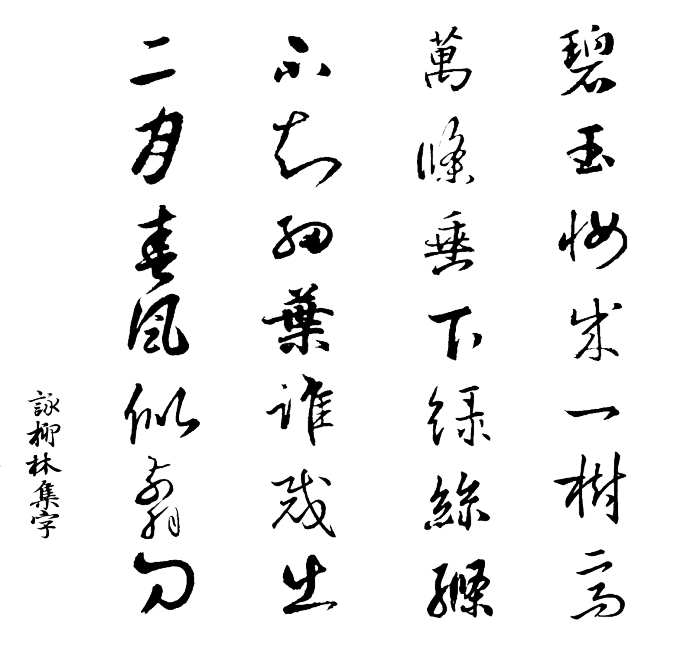 碧玉妝成一樹高
萬條垂下綠絲絛
不知細葉誰裁出
二月春風似剪刀
詠柳林集字